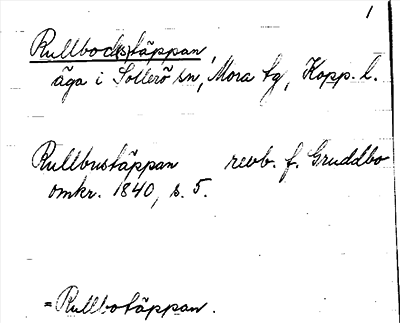 1
Rullbod(s)täppan,
äga i Sollerö sn, Mora tg, Kopp. l.
Rullbustäppan revb. f. Gruddbo
omkr. 1840, s. 5.
= Rullbotäppan.